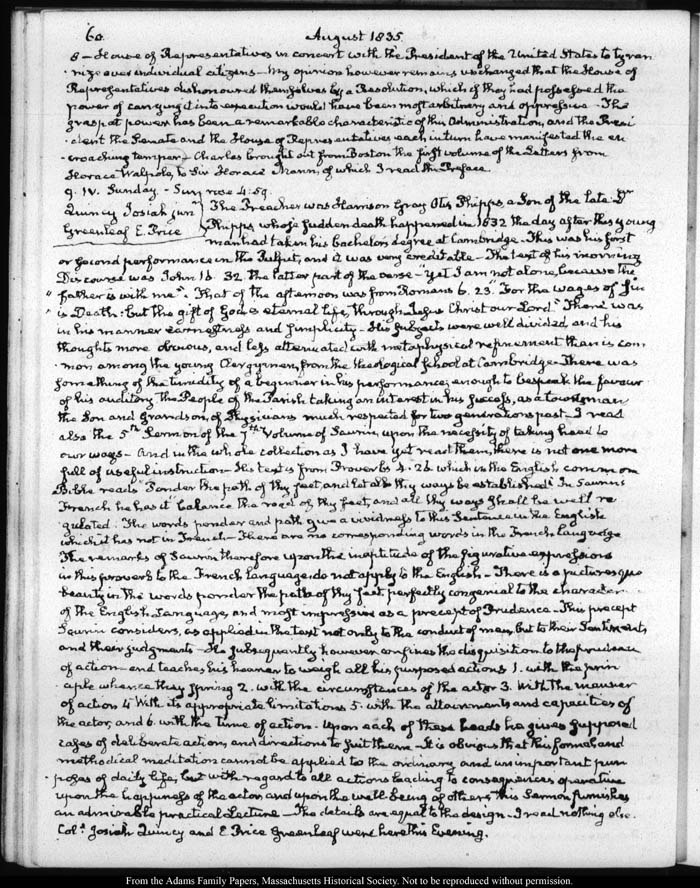 60.
August 1835.
8 – House of Representatives in concert with the President of the United States to tyran
nize over individual citizens – My opinion however remains unchanged that the House of
Representatives dishonoured themselves by a Resolution, which if they had possessed the
power of carrying it into execution would have been most arbitrary and oppressive – The
grasp at power has been a remarkable characteristic of this Administration, and the Presi
dent the Senate and the House of Representatives each in turn have manifested the en
croaching temper – Charles brought out from Boston the first volume of the Letters from
Horace Walpole, to Sir Horace Mann, of which I read the Preface.
9. IV. Sunday. Sun rose 4:59.
Quincy Josiah junr
Greenleaf E. Price
The Preacher was Harrison Gray Otis Phipps, a Son of the late Dr
Phipps, whose sudden death happened in 1832 the day after this young
man had taken his bachelor's degree at Cambridge – This was his first
or second performance in the Pulpit, and it was very creditable – The text of his morning
Discourse was John 16. 32. the latter part of the verse – "yet I am not alone, because the
" Father is with me". That of the afternoon was from Romans 6. 23. "For the wages of Sin
" is Death: but the gift of God is eternal life, through Jesus Christ our Lord." There was
in his manner earnestness and simplicity – His subjects were well divided and his
thoughts more obvious, and less alternated with metaphysical refinement than is com
mon among the young Clergymen, from the theological School at Cambridge – There was
something of the timidity of a beginner in his performance; enough to bespeak the favour
of his auditory, the People of the Parish taking an interest in his success, as a townsman
the Son and Grandson, of Physicians much respected for two generations past – I read
also the 5th Sermon of the 7th Volume of Saurin, upon the necessity of taking heed to
our ways – And in the whole collection as I have yet read them, there is not one more
full of useful instruction – His text is from Proverbs 4. 26 which in the English common
Bible reads "Ponder the path of thy feet, and let all thy ways be established" In Saurin's
French he has it "balance the road of thy feet, and all thy ways shall be well re
gulated. The words ponder and path give a vividness to this Sentence in the English
which it has not in French – There are no corresponding words in the French Language
The remarks of Saurin therefore upon the inaptitude of the figurative expressions
in this proverb to the French Language do not apply to the English – There is a picturesque
beauty in the words ponder the path of thy feet, perfectly congenial to the character
of the English Language, and most impressive as a precept of Prudence – This precept
Saurin considers, as applied in the text not only to the conduct of men, but to their Sentiments
and their judgments – He subsequently however confines the disquisition to the prudence
of action – and teaches his hearer to weigh all his purposed actions 1. with the prin
ciple whence they spring 2. with the circumstances of the actor 3. with the manner
of action 4 With its appropriate limitations 5. with the attainments and capacities of
the actor, and 6. with the time of action. Upon each of these heads he gives supposed
cases of deliberate action, and directions to suit them – It is obvious that this formal and
methodical meditation cannot be applied to the ordinary and unimportant pur
poses of daily life, but with regard to all actions leading to consequences operative
upon the happiness of the actor, and upon the well being of others, this Sermon furnishes
an admirable practical Lecture – The details are equal to the design – I read nothing else.
Coll. Josiah Quincy and E Price Greenleaf were here this Evening.
From the Adams Family Papers, Massachusetts Historical Society. Not to be reproduced without permission.